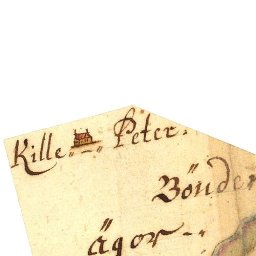 Kille Peter.
Bönder
ägor